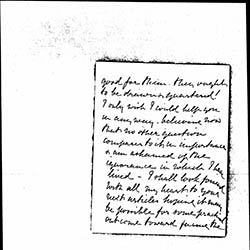 good for them. They ought
to be drawn & quartered!
I only wish I could help you
in any way. believe now
that no other question
compares to it in importance
& am ashamed of the
ignorance in which I have
lived – I shall look forward
with all my heart to your
next articles hoping it may
be possible for some great
outcome toward